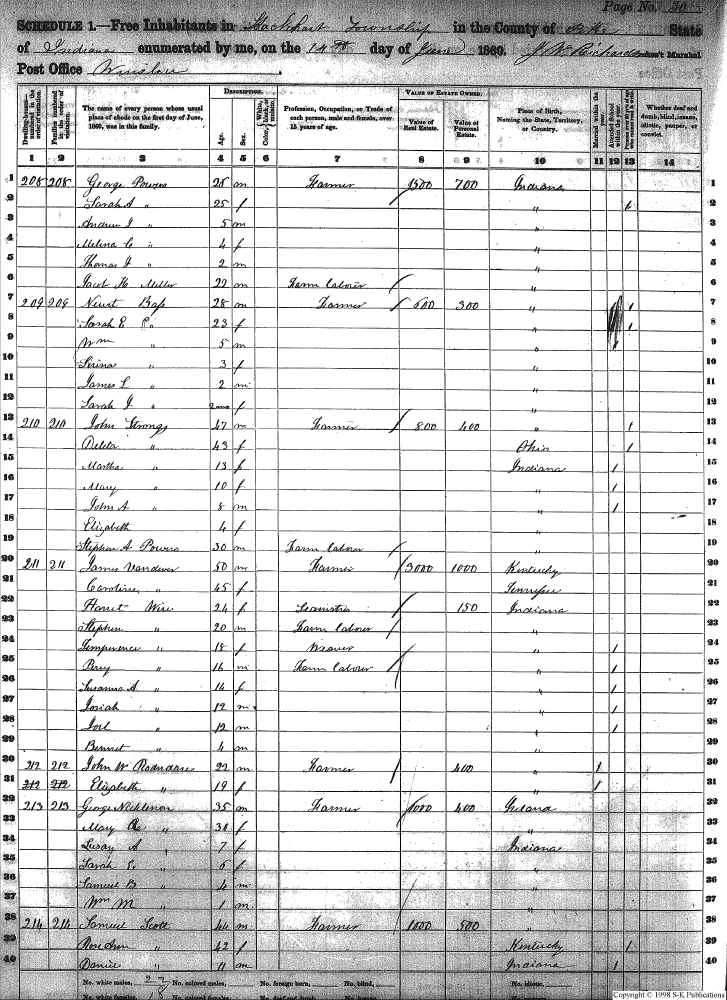 Page No. 30
SCHEDULE 1.—Free Inhabitants in Lockhart Township in the County of Pike State
of Indiana enumerated by me, on the 14th day of June 1860. J W Richardson Ass't Marshal
Post Office Winslow.
Dwelling-houses— numbered in the order of visitation.
Families numbered in the order of visitation.
The name of every person whose usual place of abode on the first day of June, 1860, was in this family.
DESCRIPTION.
Age.
Sex.
Color, White, black, or mulatto.
Profession, Occupation, or Trade of each person, male and female, over 15 years of age.
VALUE OF ESTATE OWNED.
Value of Real Estate.
Value of Personal Estate.
Place of Birth, Naming the State, Territory, or Country.
Married within the year.
Attended School within the year.
Persons over 20 y'rs of age who cannot read & write.
Whether deaf and dumb, blind, insane, idiotic, pauper, or convict.
1 2 3 4 5 6 7 8 9 10 11 12 13 14
1 208 208 George Powers 28 m Farmer 1500 700 Indiana 1
2 Sarah A " 25 f " / 2
3 Andrew J " 5 m " 3
4 Melina C " 4 f " 4
5 Thomas J " 2 m " 5
6 Jacob H Miller 22 m Farm laborer / " 6
7 209 209 Newt Bass 28 m Farmer / 600 300 " / 7
8 Sarah E " 23 f " / 8
9 Wm " 5 m " / 9
10 " 3 f " 10
11 James L " 2 m " 11
12 Sarah J " f " 12
13 210 210 John Strong 47 m Farmer / 800 400 " / 13
14 " 43 f Ohio / 14
15 Martha " 13 f Indiana / 15
16 Mary " 10 f " / 16
17 John A " 8 m " / 17
18 Elizabeth 4 f " 18
19 Stephen A Powers 30 m Farm laborer / " 19
20 211 211 James Vandiver 50 m Farmer / 3000 1000 Kentucky 20
21 Caroline " 45 f Tennessee 21
22 Harret Wise 24 f / 150 Indiana 22
23 Stephen " 20 m Farm laborer / " 23
24 Temperence " 18 f Weaver " / 24
25 Perry " 16 m Farm laborer / " / 25
26 Susanna A " 14 f " / 26
27 Josiah " 12 m " / 27
28 Joel " 12 m " / 28
29 Bennet " 4 m " 29
30 212 212 John W 22 m Farmer / 400 " / 30
31 212 212 Elizabeth " 19 f " / 31
32 213 213 George 35 m Farmer / 1000 400 Indiana 32
33 Mary " 30 f " 33
34 Susan A " 7 f Indiana 34
35 Sarah E " 6 f " 35
36 Samuel B " 4 m " 36
37 Wm M " 1 m " 37
38 214 214 Samuel Scott 44 m Farmer 1000 500 " 38
39 Rose Ann " 42 f Kentucky / 39
40 Daniel " 11 m Indiana / 40
No. white males, No. colored males, No. foreign born, No. blind, No. idiotic,
No. white females, No. colored females, No. deaf and dumb, No. insane, No. paupers,
Copyright © 1998 S-K Publications